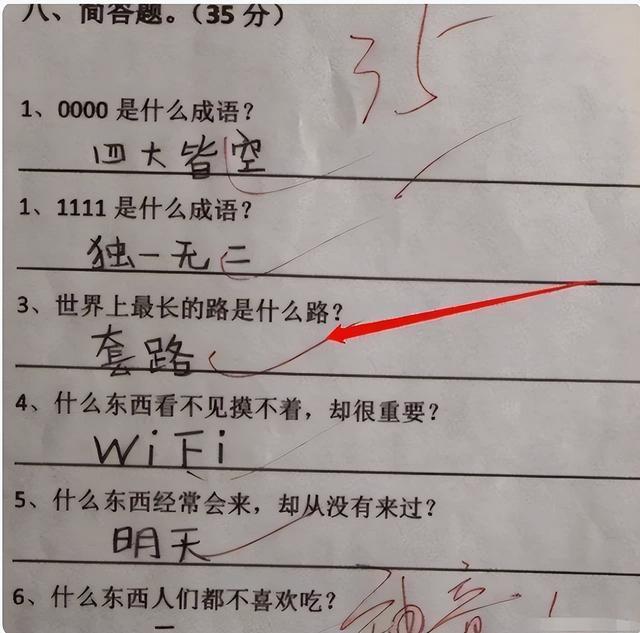 八、简答题。（35 分）
35
1、0000 是什么成语？
四大皆空
1、1111 是什么成语？
独一无二
3、世界上最长的路是什么路？
套路
4、什么东西看不见摸不着，却很重要？
WiFi
5、什么东西经常会来，却从没有来过？
明天
6、什么东西人们都不喜欢吃？